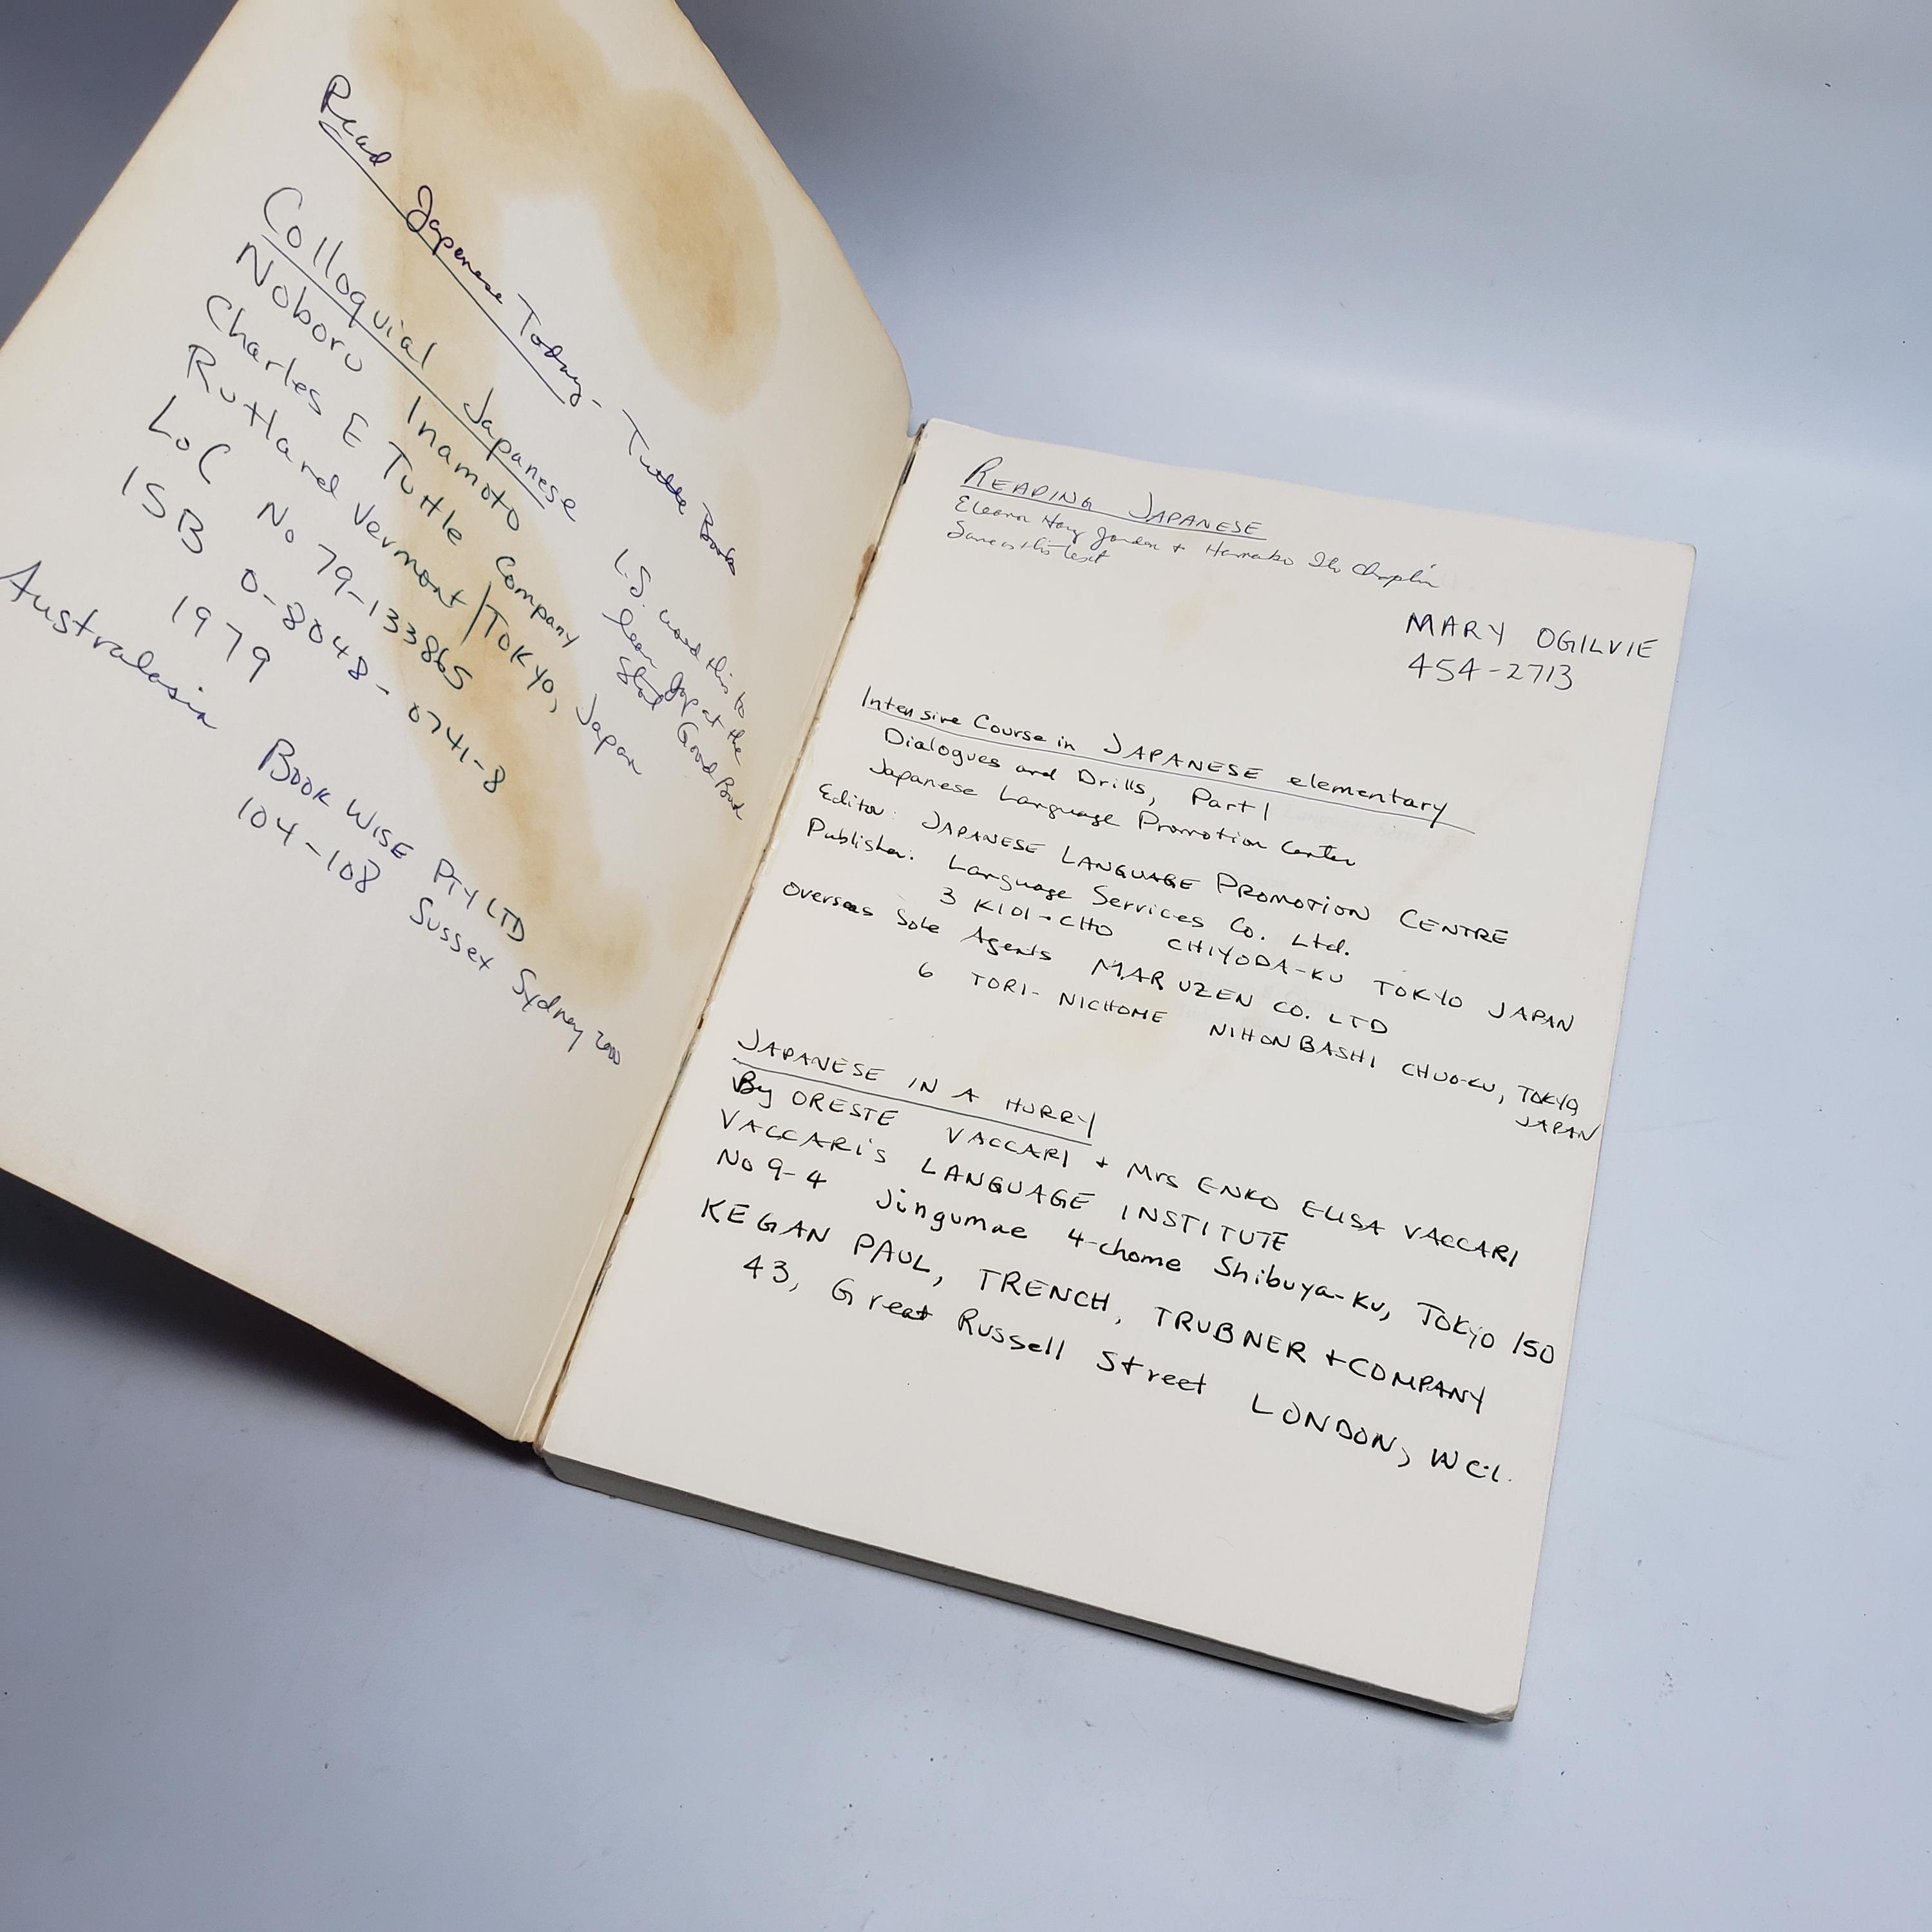 Read Japanese Today - Tuttle Books
Colloquial Japanese
Noboru Inamoto
Charles E Tuttle Company
Rutland Vermont / Tokyo, Japan
LoC No 79-133865
ISB 0-8048-0741-8
1979
Australasia
Book Wise PTY LTD
104-108 Sussex Sydney 2000
L.S. used this to
learn Jap at the
READING JAPANESE
Eleanor Harz Jorden + Hamako Ito Chaplin
Same as this text
MARY OGILVIE
454-2713
Intensive Course in JAPANESE elementary
Dialogues and Drills, Part 1
Japanese Language Promotion Center
Editor: JAPANESE LANGUAGE PROMOTION CENTRE
Publisher: Language Services Co. Ltd.
3 KIOI-CHO CHIYODA-KU TOKYO JAPAN
Overseas Sole Agents MARUZEN CO. LTD
6 TORI-NICHOME NIHONBASHI CHUO-KU, TOKYO,
JAPAN
JAPANESE IN A HURRY
By ORESTE VACCARI + Mrs ENKO ELISA VACCARI
VACCARI'S LANGUAGE INSTITUTE
No 9-4 Jingumae 4-chome Shibuya-Ku, Tokyo 150
KEGAN PAUL, TRENCH, TRUBNER + COMPANY
43, Great Russell Street LONDON, WC1.